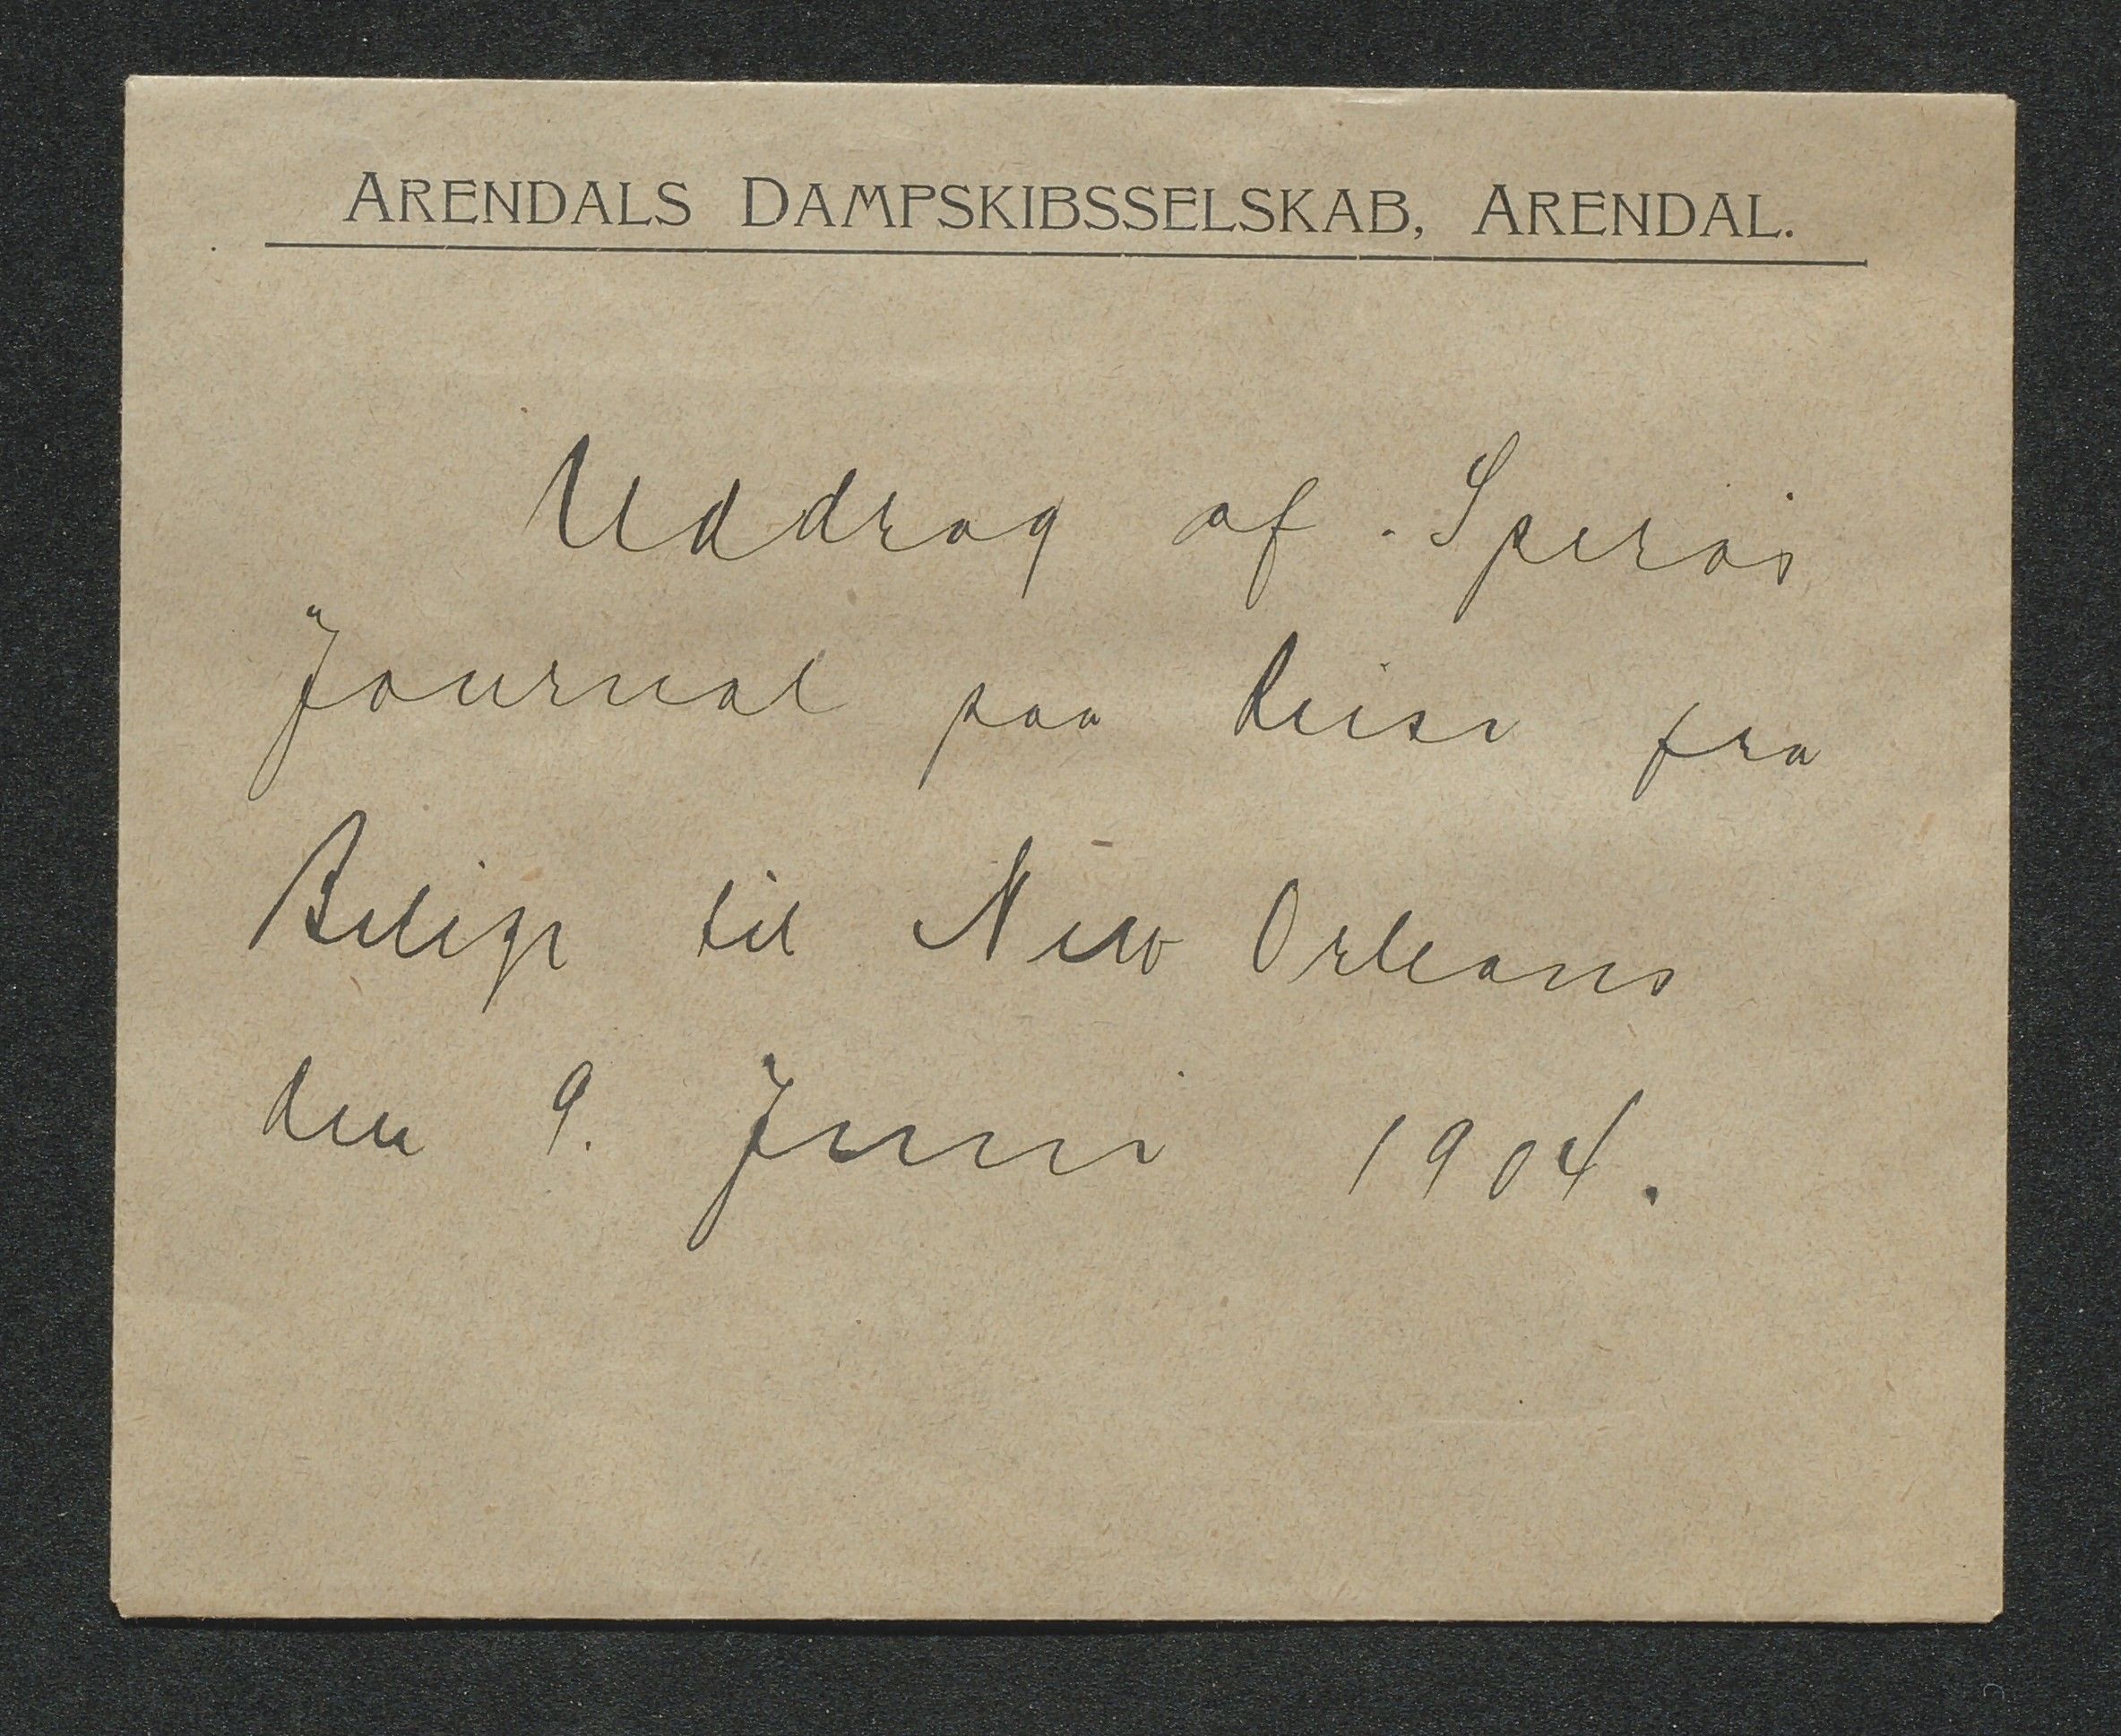 ARENDALS DAMPSKIBSSELSKAB, ARENDAL.
Uddrag af Speros
Journal paa Reise fra
Belize til New Orleans
den 9. Juni 1904.